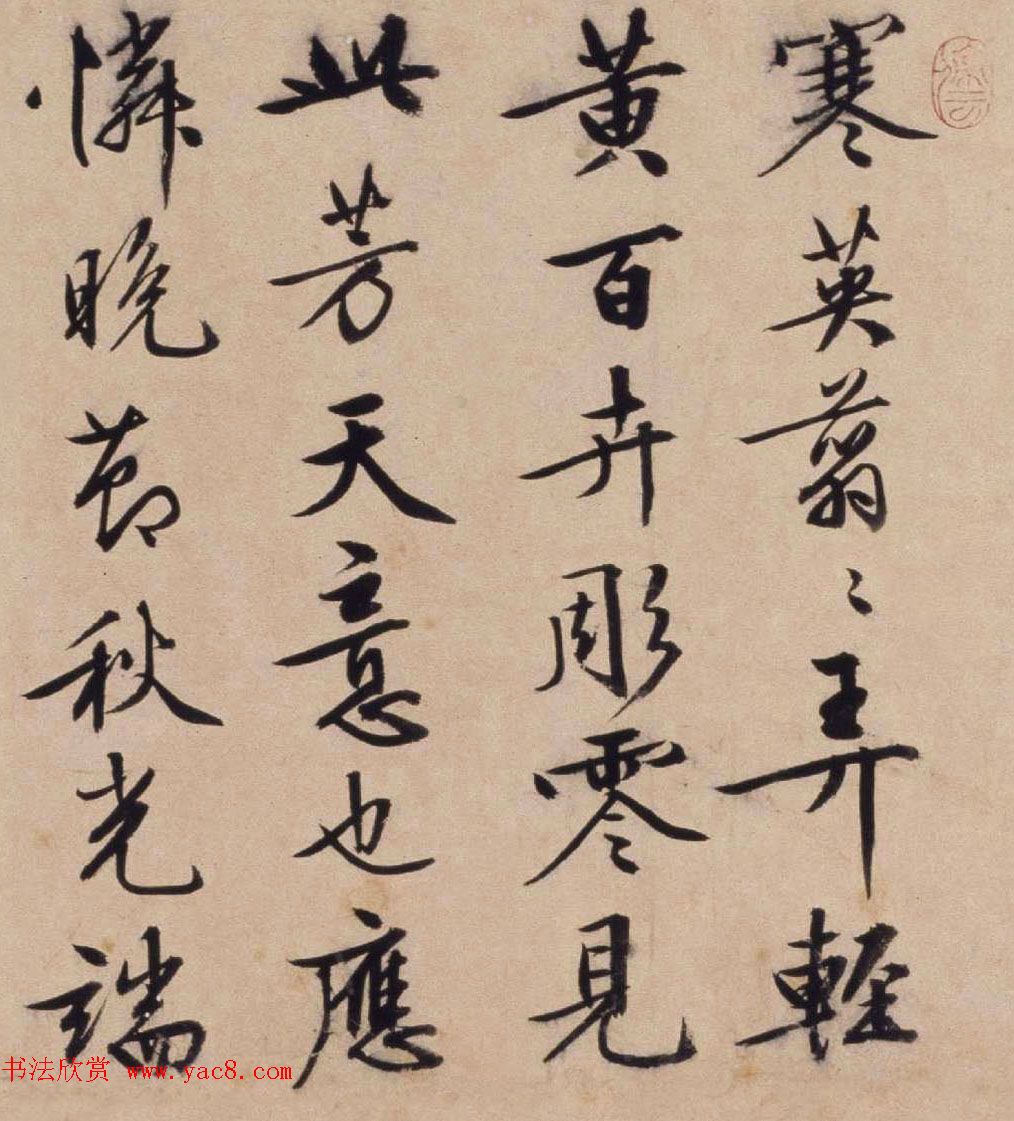 寒英蓊〻弄輕
黃百卉彫零見
此芳天意也應
憐晚節秋光端
书法欣赏 www.yac8.com